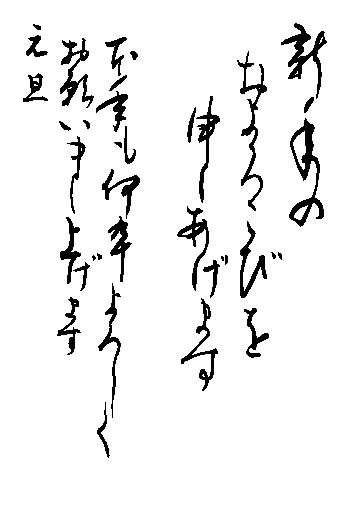 新年の
およろこびを
申しあげます
本年も何卒よろしく
お願い申し上げます
元旦